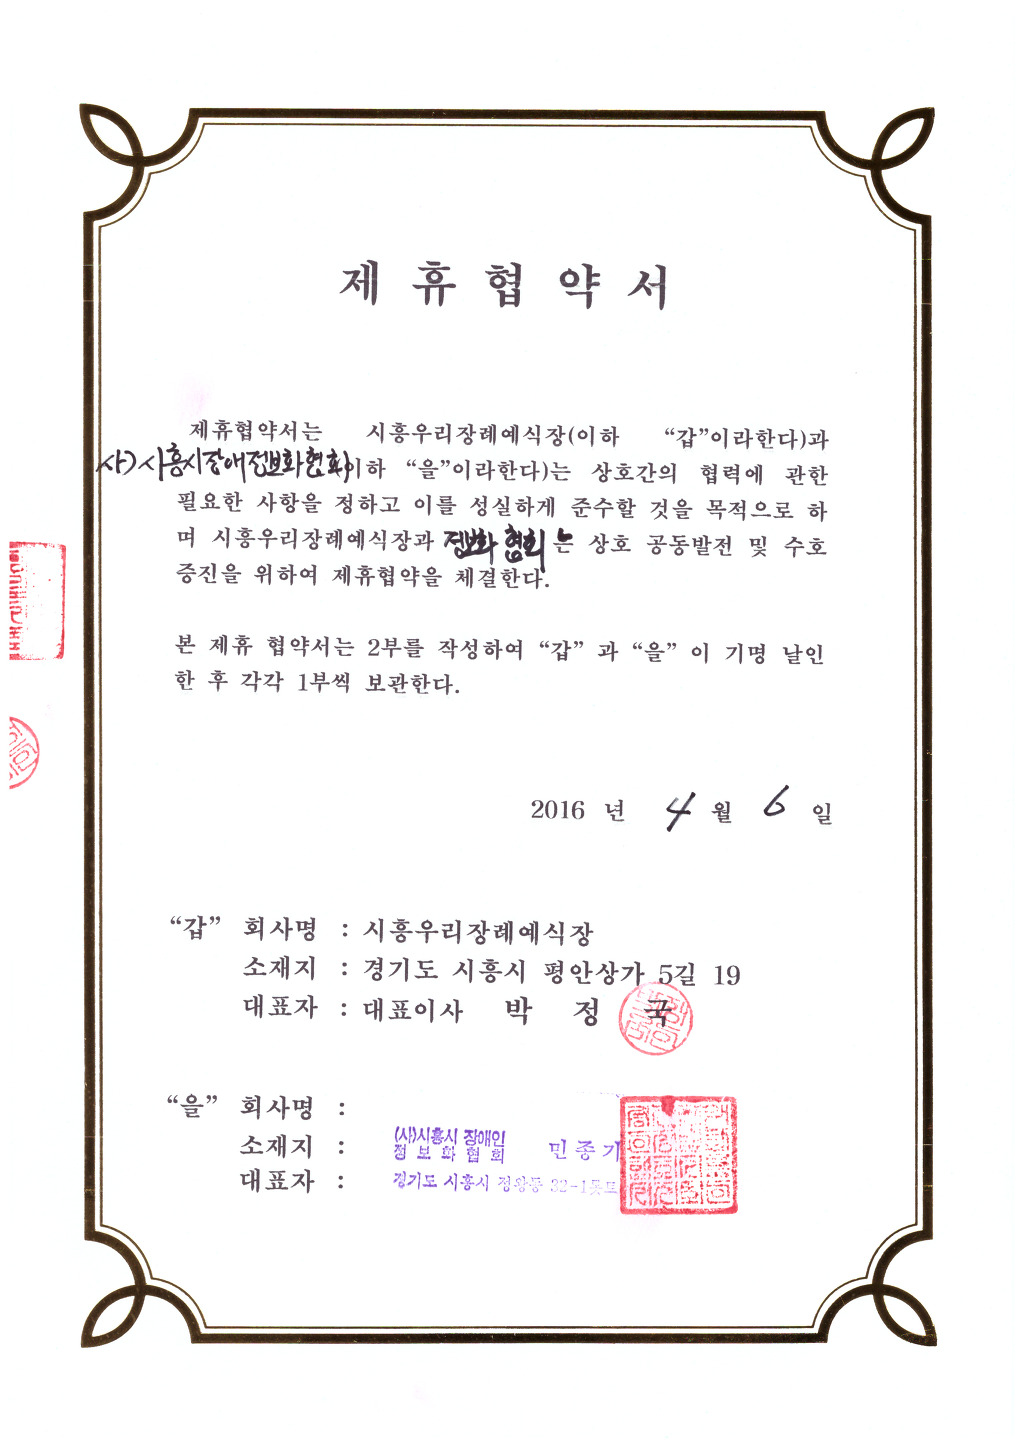 제 휴 협 약 서
제휴협약서는 시흥우리장례예식장(이하 “갑”이라한다)과
사)시흥시장애정보화협회이하 “을”이라한다)는 상호간의 협력에 관한
필요한 사항을 정하고 이를 성실하게 준수할 것을 목적으로 하
며 시흥우리장례예식장과 정보화협회는 상호 공동발전 및 수호
증진을 위하여 제휴협약을 체결한다.
본 제휴 협약서는 2부를 작성하여 “갑” 과 “을” 이 기명 날인
한 후 각각 1부씩 보관한다.
2016 년 4 월 6 일
“갑” 회사명 : 시흥우리장례예식장
소재지 : 경기도 시흥시 평안상가 5길 19
대표자 : 대표이사 박 정 국
“을” 회사명 :
소재지 :
대표자 :
(사)시흥시 장애인
정 보 화 협 회 민 종 기
경기도 시흥시 정왕동 32-1롯트